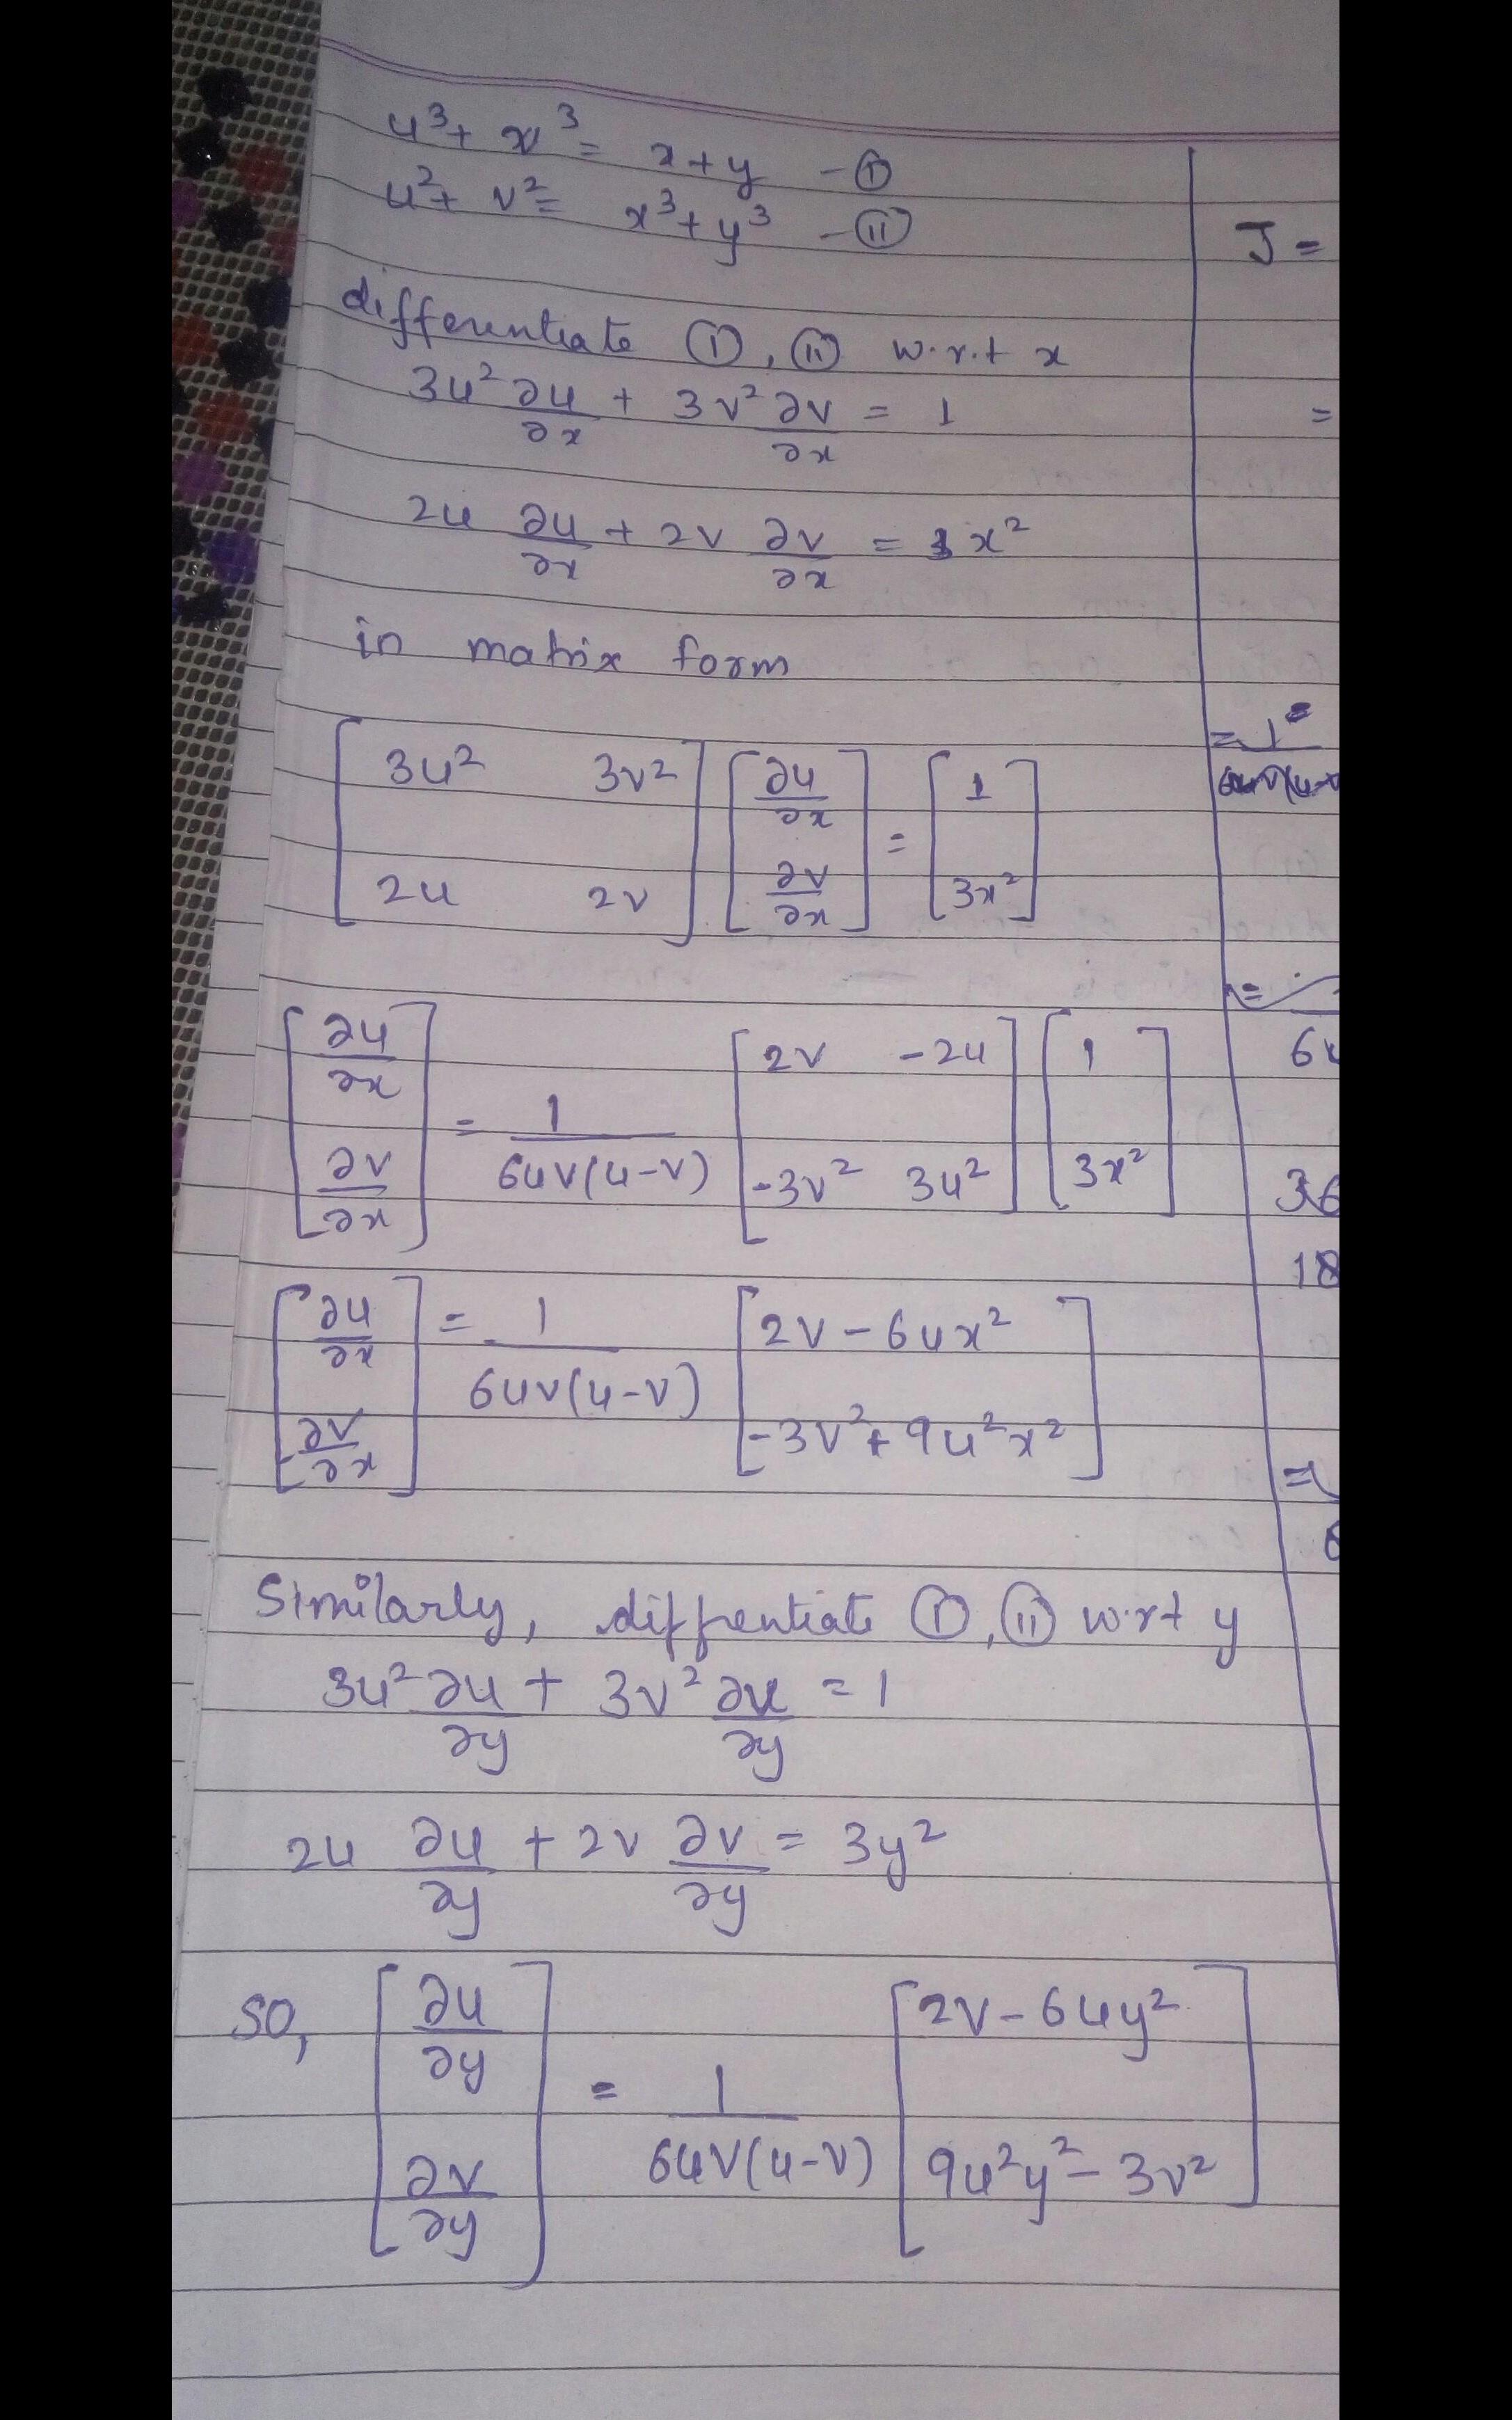 u³ + v³ = x + y - (I)
u² + v² = x³ + y³ - (II)
differentiate (I), (II) w.r.t x
3u² ∂u/∂x + 3v² ∂v/∂x = 1
2u ∂u/∂x + 2v ∂v/∂x = 3x²
in matrix form
[3u² 3v²; 2u 2v] [∂u/∂x; ∂v/∂x] = [1; 3x²]
[∂u/∂x; ∂v/∂x] = 1/6uv(u-v) [2v -2u; -3v² 3u²] [1; 3x²]
[∂u/∂x; ∂v/∂x] = 1/6uv(u-v) [2v - 6ux²; -3v² + 9u²x²]
Similarly, diffrentiate (I), (II) w.r.t y
3u² ∂u/∂y + 3v² ∂v/∂y = 1
2u ∂u/∂y + 2v ∂v/∂y = 3y²
so, [∂u/∂y; ∂v/∂y] = 1/6uv(u-v) [2v - 6uy²; 9u²y² - 3v²]
J =
=
=
36
18
=